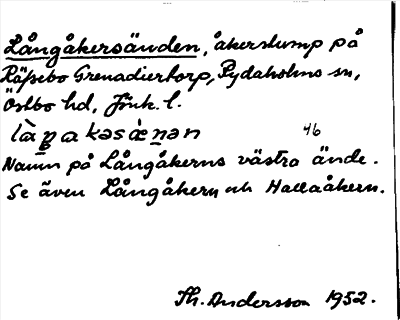 Långåkersänden, åkerstump på
Räfsebo Grenadiertorp, Rydaholms sn,
Östbo hd, Jönk. l.
46
Namn på Långåkerns västra ände.
Se även Långåkern och Hallaåkern.
Th. Andersson 1952.